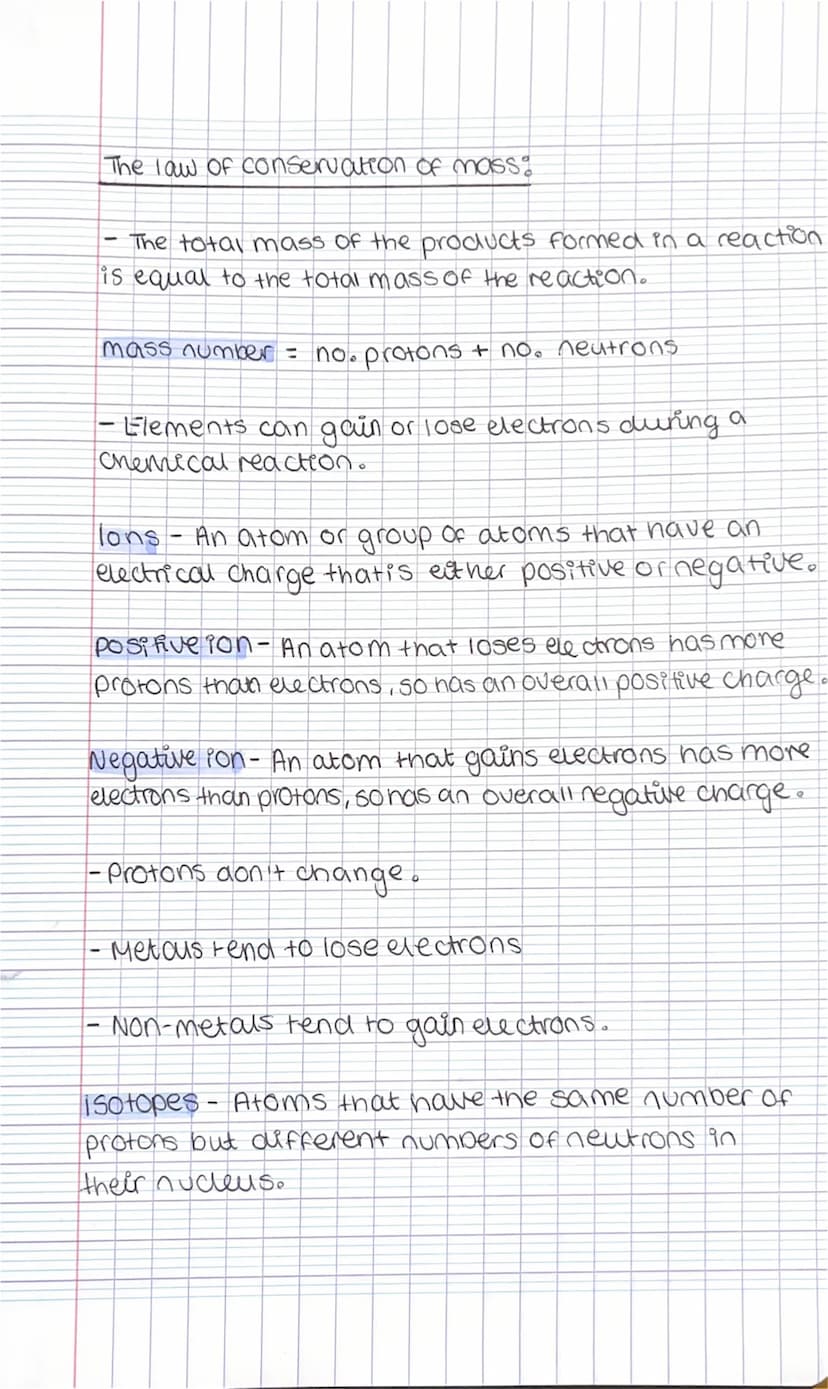 The law of conservation of mass:
- The total mass of the products formed in a reaction
is equal to the total mass of the reaction.
mass number = no. protons + no. neutrons
- Elements can gain or lose electrons during a
chemical reaction.
Ions - An atom or group of atoms that have an
electrical charge that is either positive or negative.
positive ion - An atom that loses electrons has more
protons than electrons, so has an overall positive charge.
Negative ion - An atom that gains electrons has more
electrons than protons, so has an overall negative charge.
- Protons don't change.
- Metals tend to lose electrons
- Non-metals tend to gain electrons.
isotopes - Atoms that have the same number of
protons but different numbers of neutrons in
their nucleus.